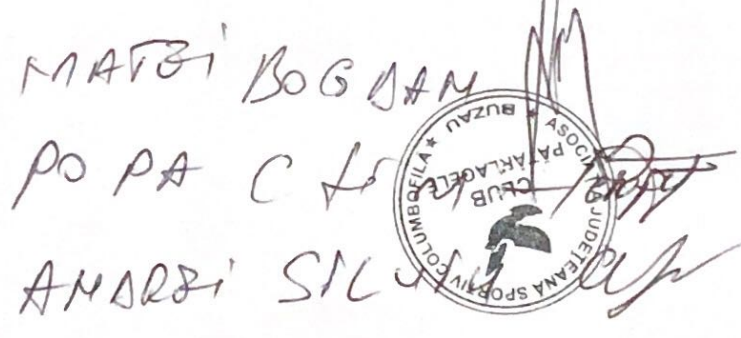 MATEI BOGDAN
POPA C
ANDREI SILVIU
ASOCIAȚIA JUDETEANA SPORTIV COLUMBOFILA
★ BUZAU ★
CLUB
PATARLAGELE